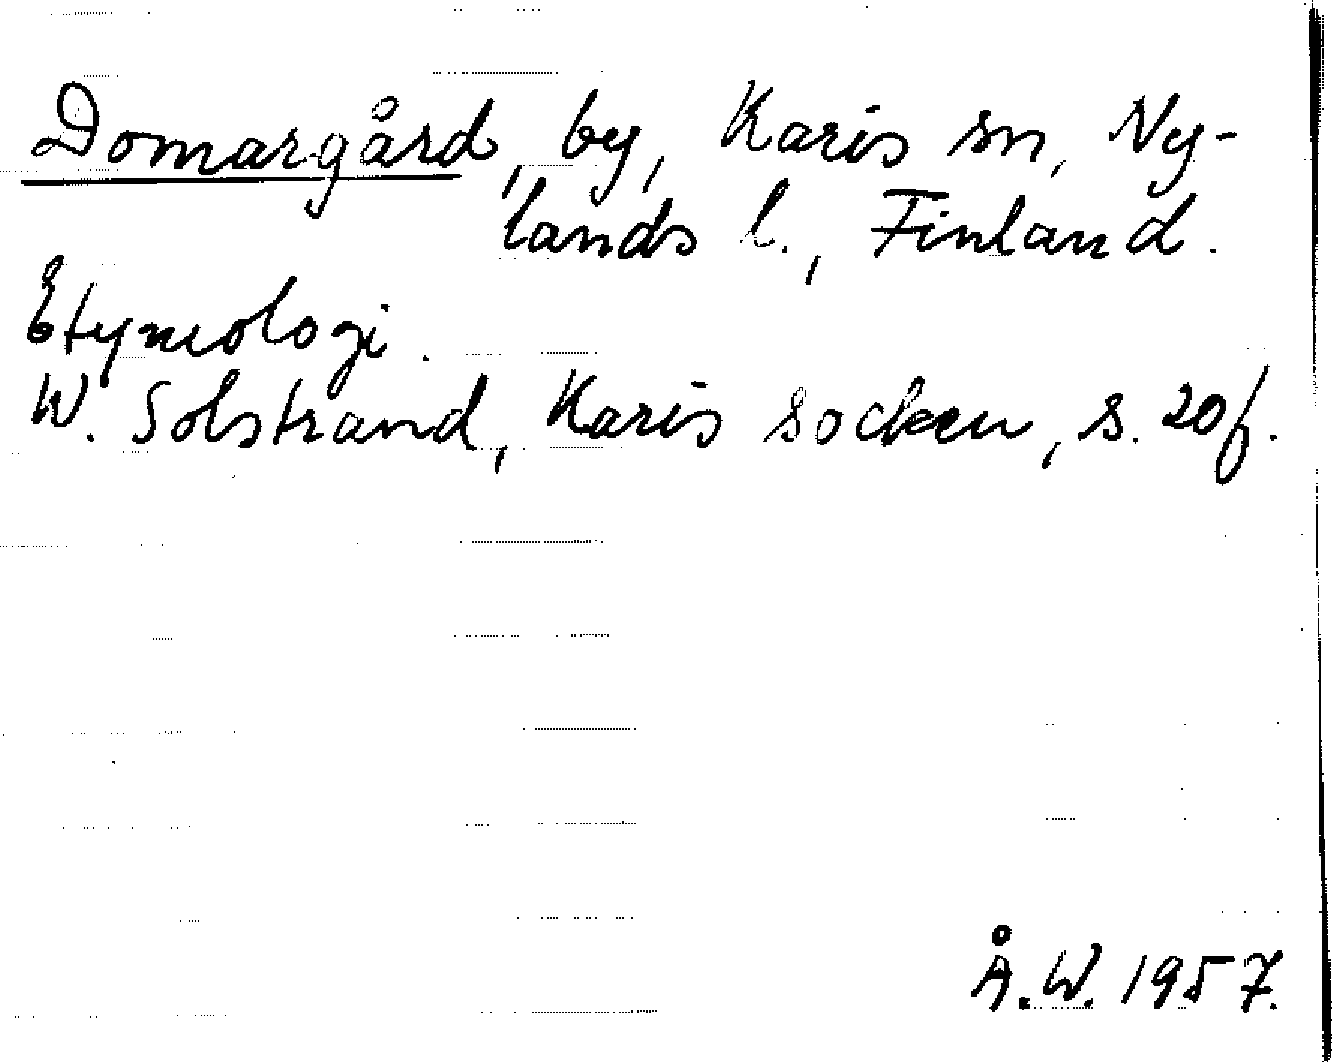 Domargård, by, Karis sn, Ny-
lands l., Finland.
Etymologi.
W. Solstrand, Karis socken, s. 20f.
Å.W. 1957.